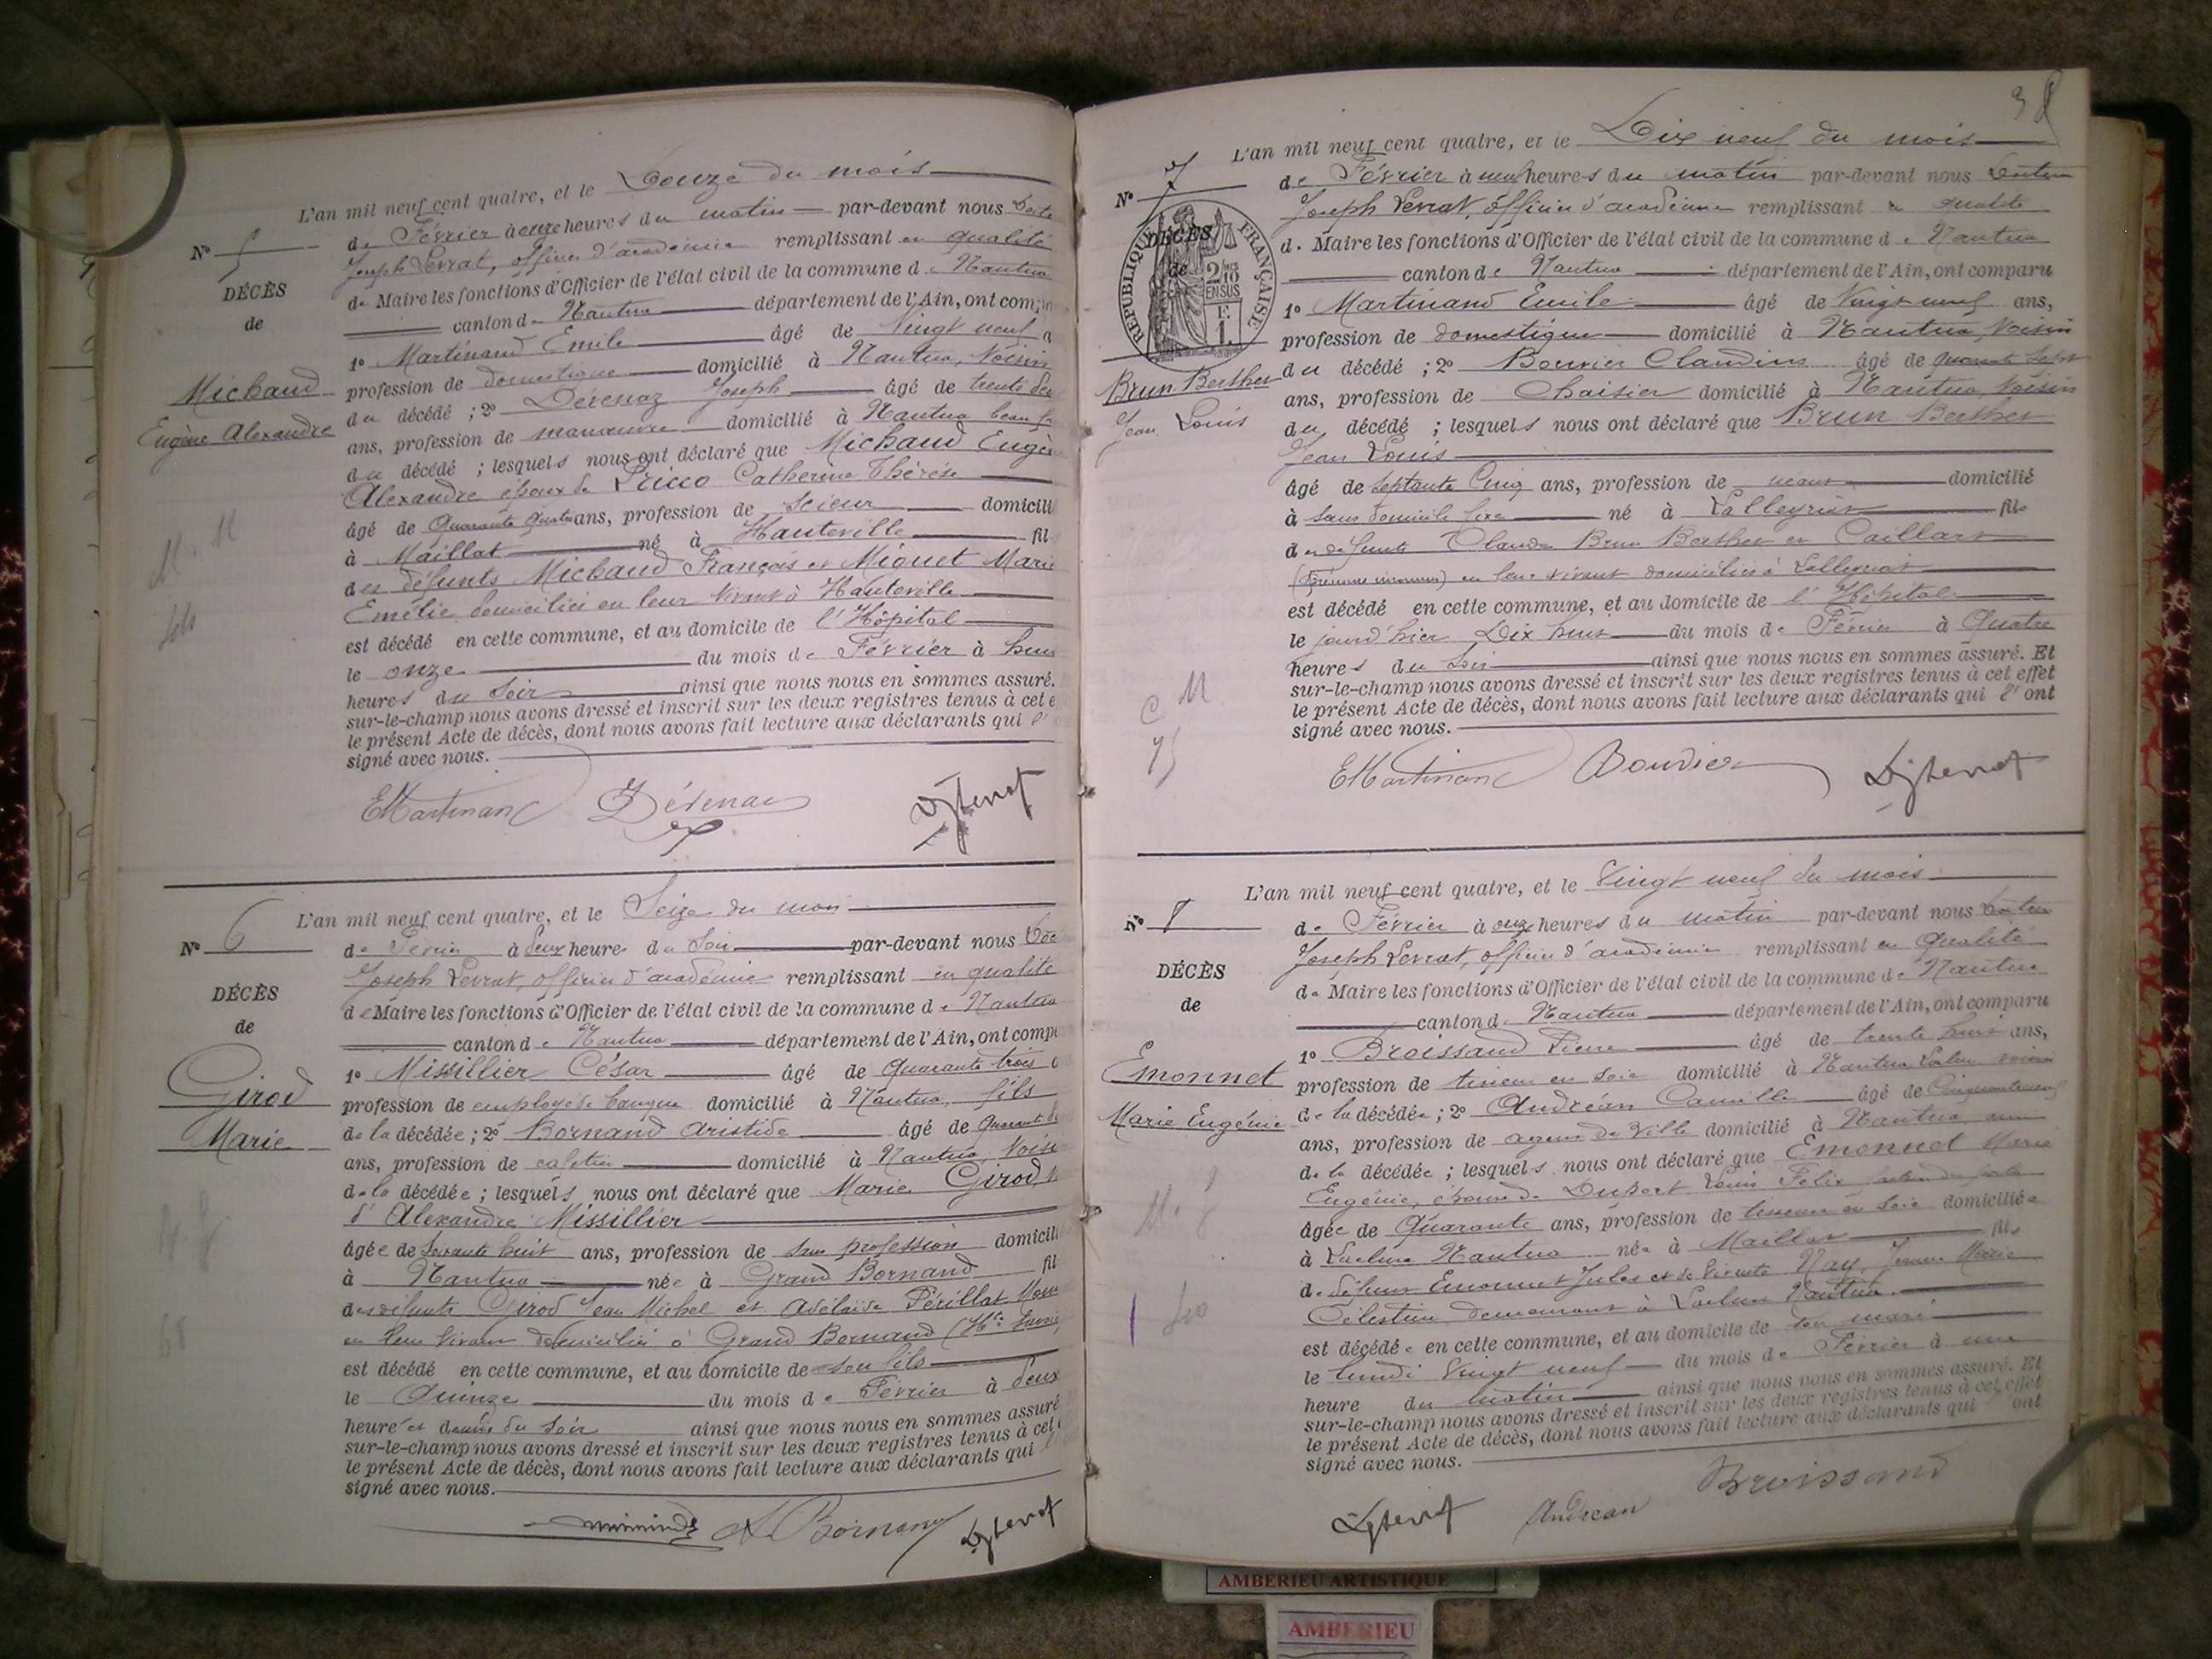 L'an mil neuf cent quatre, et le Douze du mois
N° 5
de Février à onze heures du matin par-devant nous
Joseph Levrat, officier d'académie remplissant en qualité
DÉCÈS
de Maire les fonctions d'Officier de l'état civil de la commune de Nantua
de
canton de Nantua département de l'Ain, ont
1° Martinand Emile âgé de Vingt neuf
Michaud
profession de domestique domicilié à Nantua, Voisin
Eugène Alexandre
du décédé ; 2° Dérenaz Joseph âgé de trente
ans, profession de manœuvre domicilié à Nantua beau
du décédé ; lesquels nous ont déclaré que Michaud Eugène
Alexandre époux de Catherine Thérèse
âgé de Quarante Quatre ans, profession de scieur domicili
à Maillat né à Hauteville fil
des défunts Michaud François et Miquet Marie
Emélie domiciliés en leur vivant à Hauteville
est décédé en cette commune, et au domicile de l'Hôpital
le onze du mois de Février à
heures du Soir ainsi que nous nous en sommes assuré.
sur-le-champ nous avons dressé et inscrit sur les deux registres tenus à cet e
le présent Acte de décès, dont nous avons fait lecture aux déclarants qui l'
signé avec nous.
EMartinand Dérenaz
L'an mil neuf cent quatre, et le Seize du mois
N° 6
de Février à deux heures du Soir par-devant nous
Joseph Levrat, officier d'académie remplissant en qualité
DÉCÈS
de Maire les fonctions d'Officier de l'état civil de la commune de Nantua
de
canton de Nantua département de l'Ain, ont comp
1° Missillier César âgé de Quarante trois
Girod
profession de employé de banque domicilié à Nantua, fils
Marie
de la décédée ; 2° Bornand Aristide âgé de Quarante
ans, profession de cafetier domicilié à Nantua, Voisin
de la décédée ; lesquels nous ont déclaré que Marie Girod
d'Alexandre Missillier
âgée de Soixante huit ans, profession de sans profession domicili
à Nantua née à Grand Bornand fil
des défunts Girod Jean Michel et Adélaïde Périllat
en leur vivant domiciliés à Grand Bornand (Hte Savoie)
est décédé en cette commune, et au domicile de son fils
le Quinze du mois de Février à deux
heures et demie du Soir ainsi que nous nous en sommes assuré
sur-le-champ nous avons dressé et inscrit sur les deux registres tenus à cet
le présent Acte de décès, dont nous avons fait lecture aux déclarants qui
signé avec nous.
A Bornand
68
38
L'an mil neuf cent quatre, et le Dix neuf du mois
N° 7
de Février à neuf heures du matin par-devant nous Docteur
Joseph Levrat, officier d'académie remplissant en qualité
DÉCÈS
de Maire les fonctions d'Officier de l'état civil de la commune de Nantua
de
RÉPUBLIQUE FRANÇAISE
2/10 EN SUS
F. 1.
canton de Nantua département de l'Ain, ont comparu
1° Martinand Emile âgé de Vingt neuf ans,
profession de domestique domicilié à Nantua, Voisin
Brun Berthet
du décédé ; 2° Bouvier Claudius âgé de quarante sept
Jean Louis
ans, profession de Chaisier domicilié à Nantua, Voisin
du décédé ; lesquels nous ont déclaré que Brun Berthet
Jean Louis
âgé de septante Cinq ans, profession de néant domicilié
à sans domicile fixe né à Lalleyriat fils
des défunts Claude Brun Berthet et Caillart
(Prénoms inconnus) en leur vivant domiciliés à Lalleyriat
est décédé en cette commune, et au domicile de l'Hôpital
le jourd'hier Dix huit du mois de Février à Quatre
heures du Soir ainsi que nous nous en sommes assuré. Et
sur-le-champ nous avons dressé et inscrit sur les deux registres tenus à cet effet
le présent Acte de décès, dont nous avons fait lecture aux déclarants qui l'ont
signé avec nous.
75
EMartinand Bouvier
L'an mil neuf cent quatre, et le Vingt neuf du mois
N° 8
de Février à onze heures du matin par-devant nous Docteur
Joseph Levrat, officier d'académie remplissant en Qualité
DÉCÈS
de Maire les fonctions d'Officier de l'état civil de la commune de Nantua
de
canton de Nantua département de l'Ain, ont comparu
1° Broissand Pierre âgé de trente huit ans,
Emonnet
profession de tisseur en soie domicilié à Nantua voisin
Marie Eugénie
de la décédée ; 2° Andréan Camille âgé de
ans, profession de agent de Ville domicilié à Nantua ami
de la décédée ; lesquels nous ont déclaré que Emonnet Marie
Eugénie, épouse de Louis Félix
âgée de Quarante ans, profession de tisseuse en soie domiciliée
à Nantua née à Maillat fils
de défunt Emonnet Jules et de vivante Nay, Jeanne Marie
Célestine demeurant à Nantua.
est décédée en cette commune, et au domicile de son mari
le lundi Vingt neuf du mois de Février à une
heure du matin ainsi que nous nous en sommes assuré. Et
sur-le-champ nous avons dressé et inscrit sur les deux registres tenus à cet effet
le présent Acte de décès, dont nous avons fait lecture aux déclarants qui ont
signé avec nous.
Andréan Broissand
AMBERIEU ARTISTIQUE
AMBERIEU